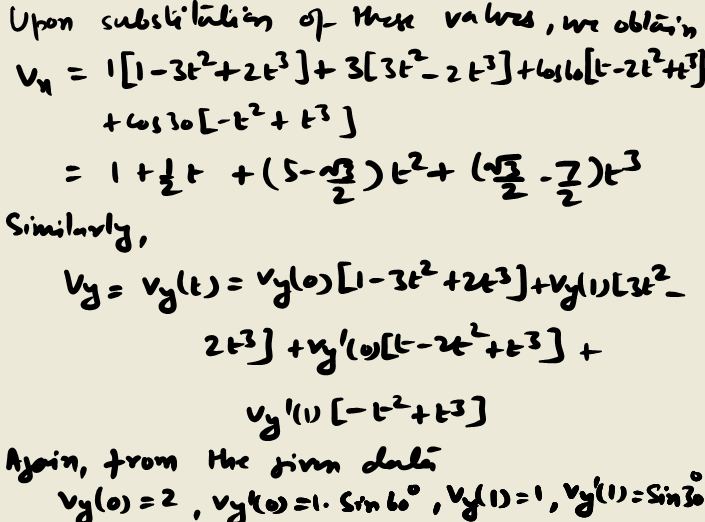 Upon substitution of these values, we obtain
Vx = 1[1-3t²+2t³] + 3[3t²-2t³] + cos60[t-2t²+t³]
+ cos30[-t²+t³]
= 1 + 1/2 t + (5-√3/2)t² + (√3/2 - 7/2)t³
Similarly,
Vy = Vy(t) = Vy(0)[1-3t²+2t³] + Vy(1)[3t²-
2t³] + Vy'(0)[t-2t²+t³] +
Vy'(1)[-t²+t³]
Again, from the given data
Vy(0) = 2, Vy'(0) = 1. Sin 60°, Vy(1) = 1, Vy'(1) = Sin30°